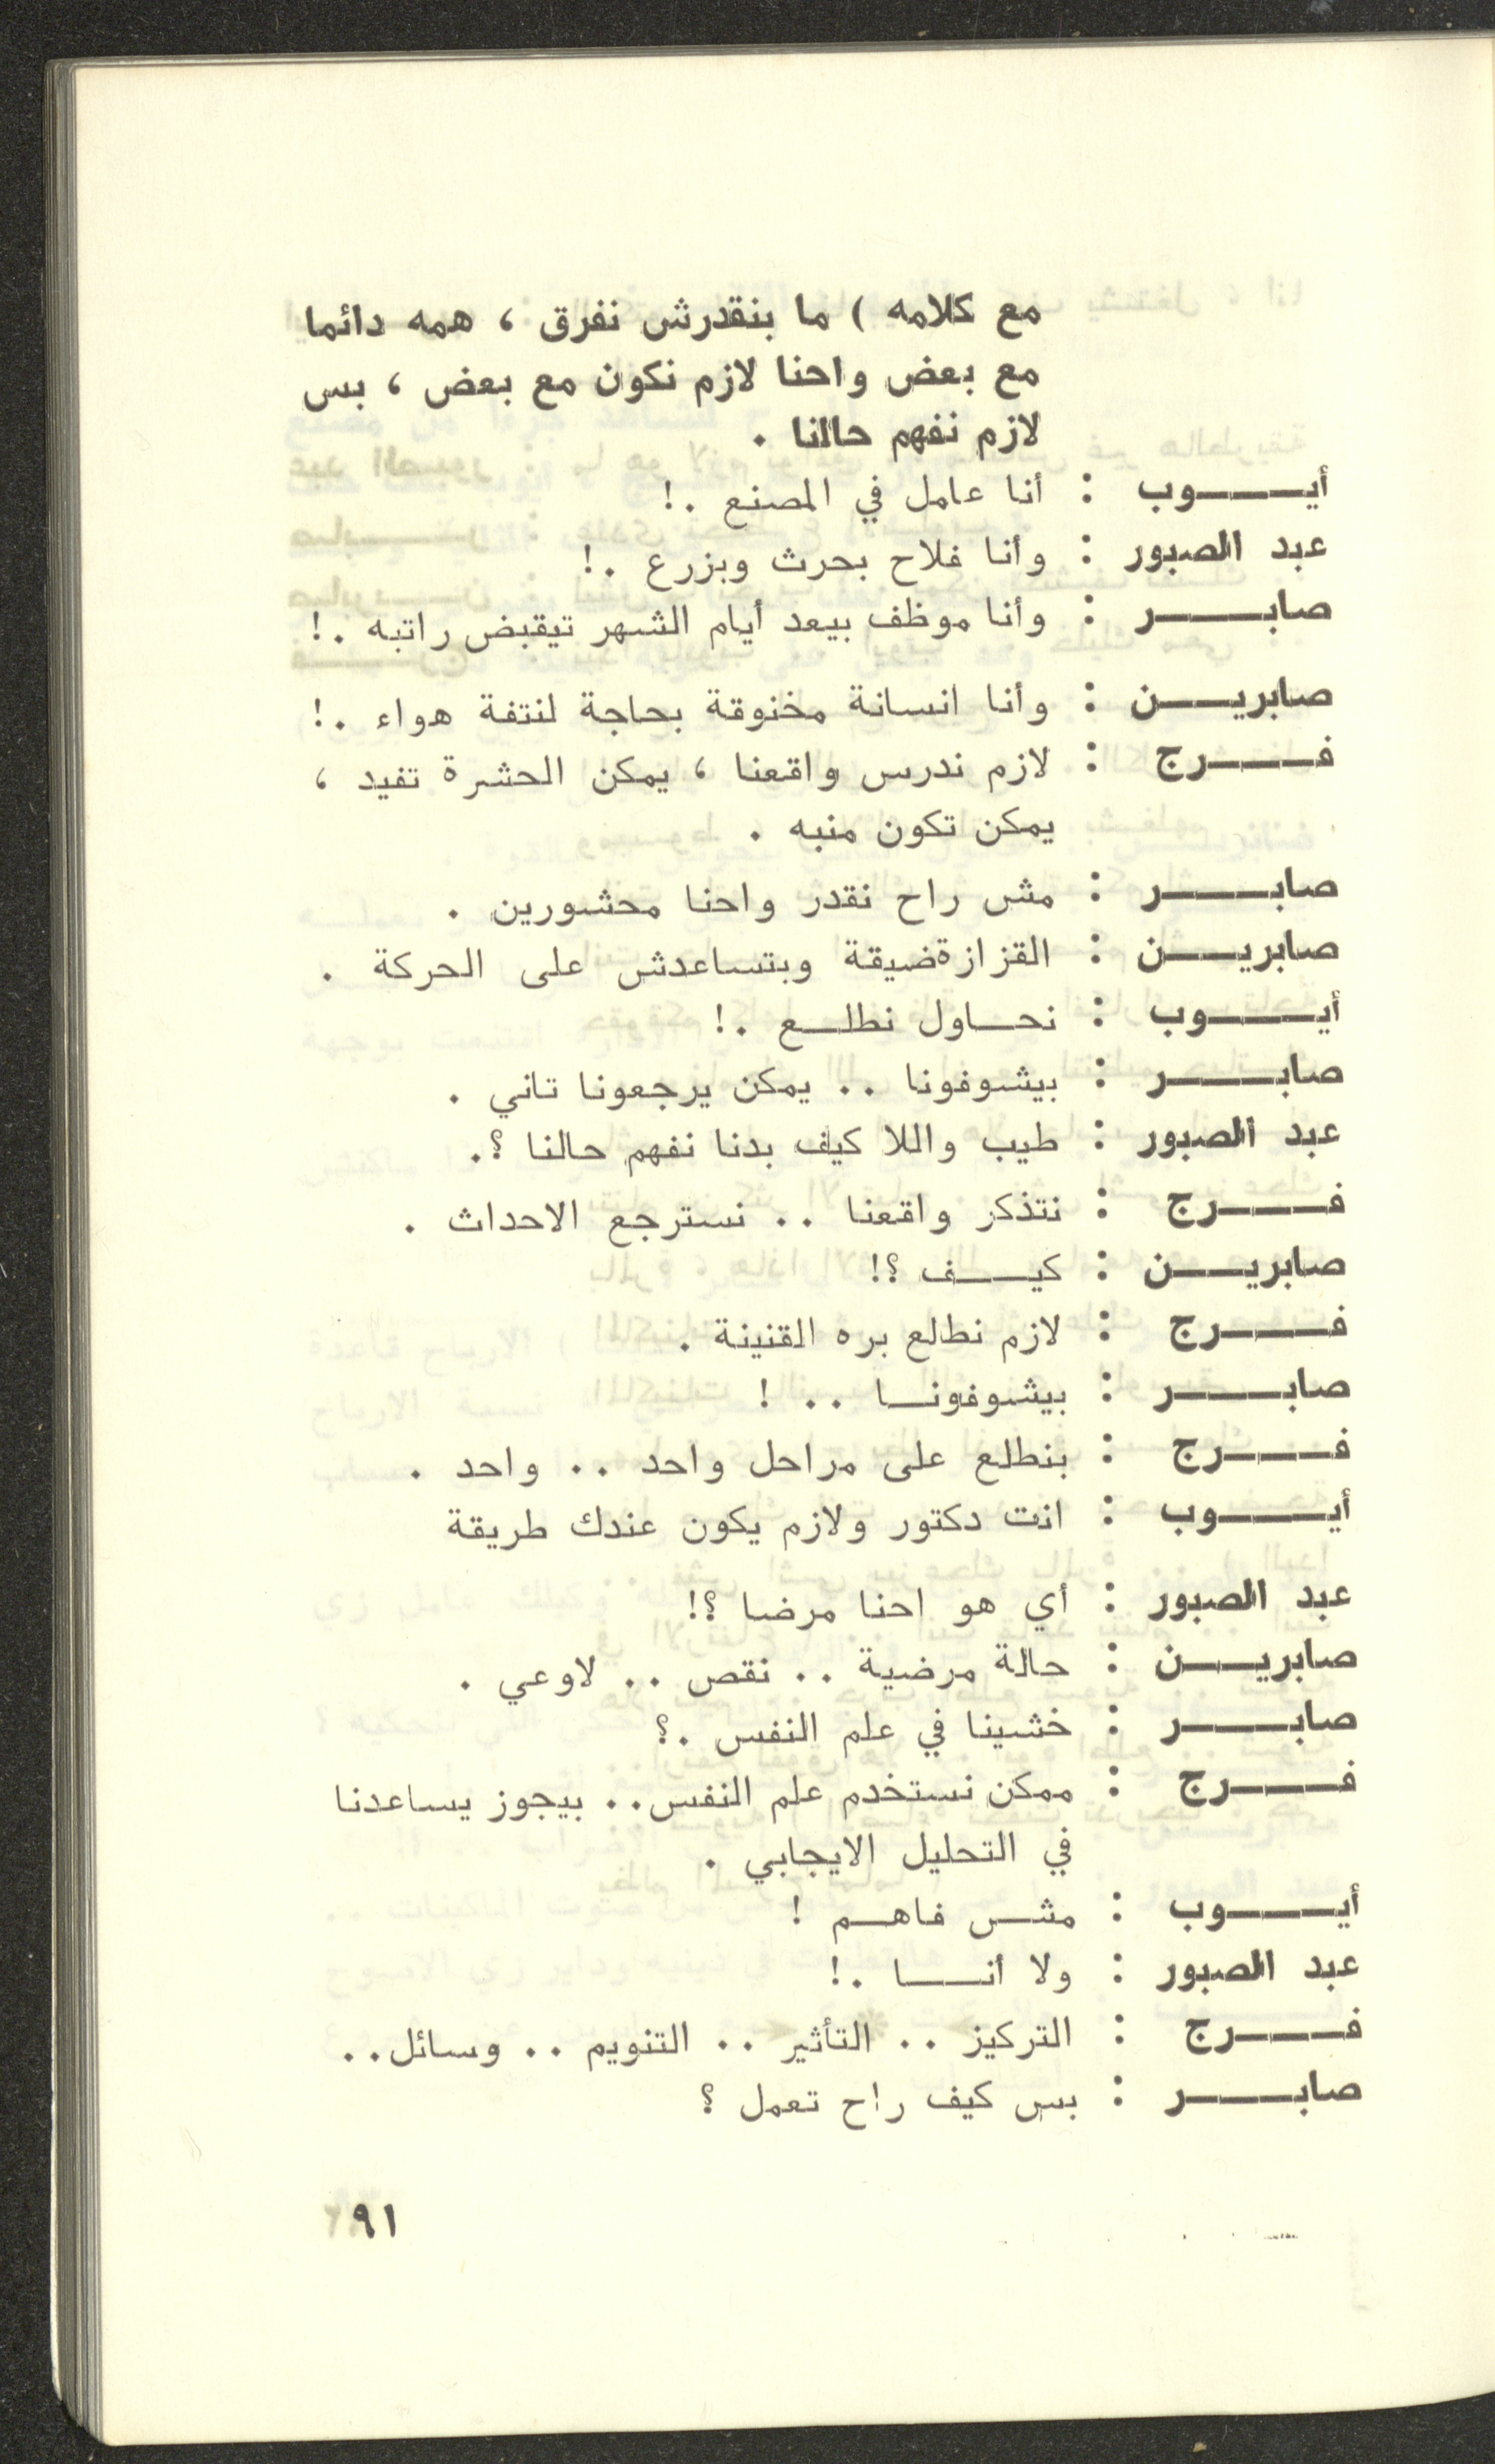 مع كلامه ) ما بنقدرش نفرق ، همه دائما
مع بعض واحنا لازم نكون مع بعض ، بس
لازم نفهم حالنا .
أيــــوب : أنا عامل في المصنع .!
عبد الصبور : وأنا فلاح بحرث وبزرع .!
صابــــر : وأنا موظف بيعد أيام الشهر تيقبض راتبه .!
صابريــــن : وأنا انسانة مخنوقة بحاجة لنتفة هواء .!
فــــرج : لازم ندرس واقعنا ، يمكن الحشرة تفيد ،
يمكن تكون منبه .
صابــــر : مش راح نقدر واحنا محشورين .
صابريــــن : القزازةضيقة وبتساعدش على الحركة .
أيــــوب : نحــاول نطلــع .!
صابــــر : بيشوفونا .. يمكن يرجعونا تاني .
عبد الصبور : طيب واللا كيف بدنا نفهم حالنا ؟.
فــــرج : نتذكر واقعنا .. نسترجع الاحداث .
صابريــــن : كيــــف ؟!
فــــرج : لازم نطلع بره القنينة .
صابــــر : بيشوفونــا .. !
فــــرج : بنطلع على مراحل واحد .. واحد .
أيــــوب : انت دكتور ولازم يكون عندك طريقة
عبد الصبور : أي هو احنا مرضا ؟!
صابريــــن : حالة مرضية .. نقص .. لاوعي .
صابــــر : خشينا في علم النفس .؟
فــــرج : ممكن نستخدم علم النفس.. بيجوز يساعدنا
في التحليل الايجابي .
أيــــوب : مشــس فاهــم !
عبد الصبور : ولا أنــــا .!
فــــرج : التركيز .. التأثير .. التنويم .. وسائل..
صابــــر : بس كيف راح تعمل ؟
٩١